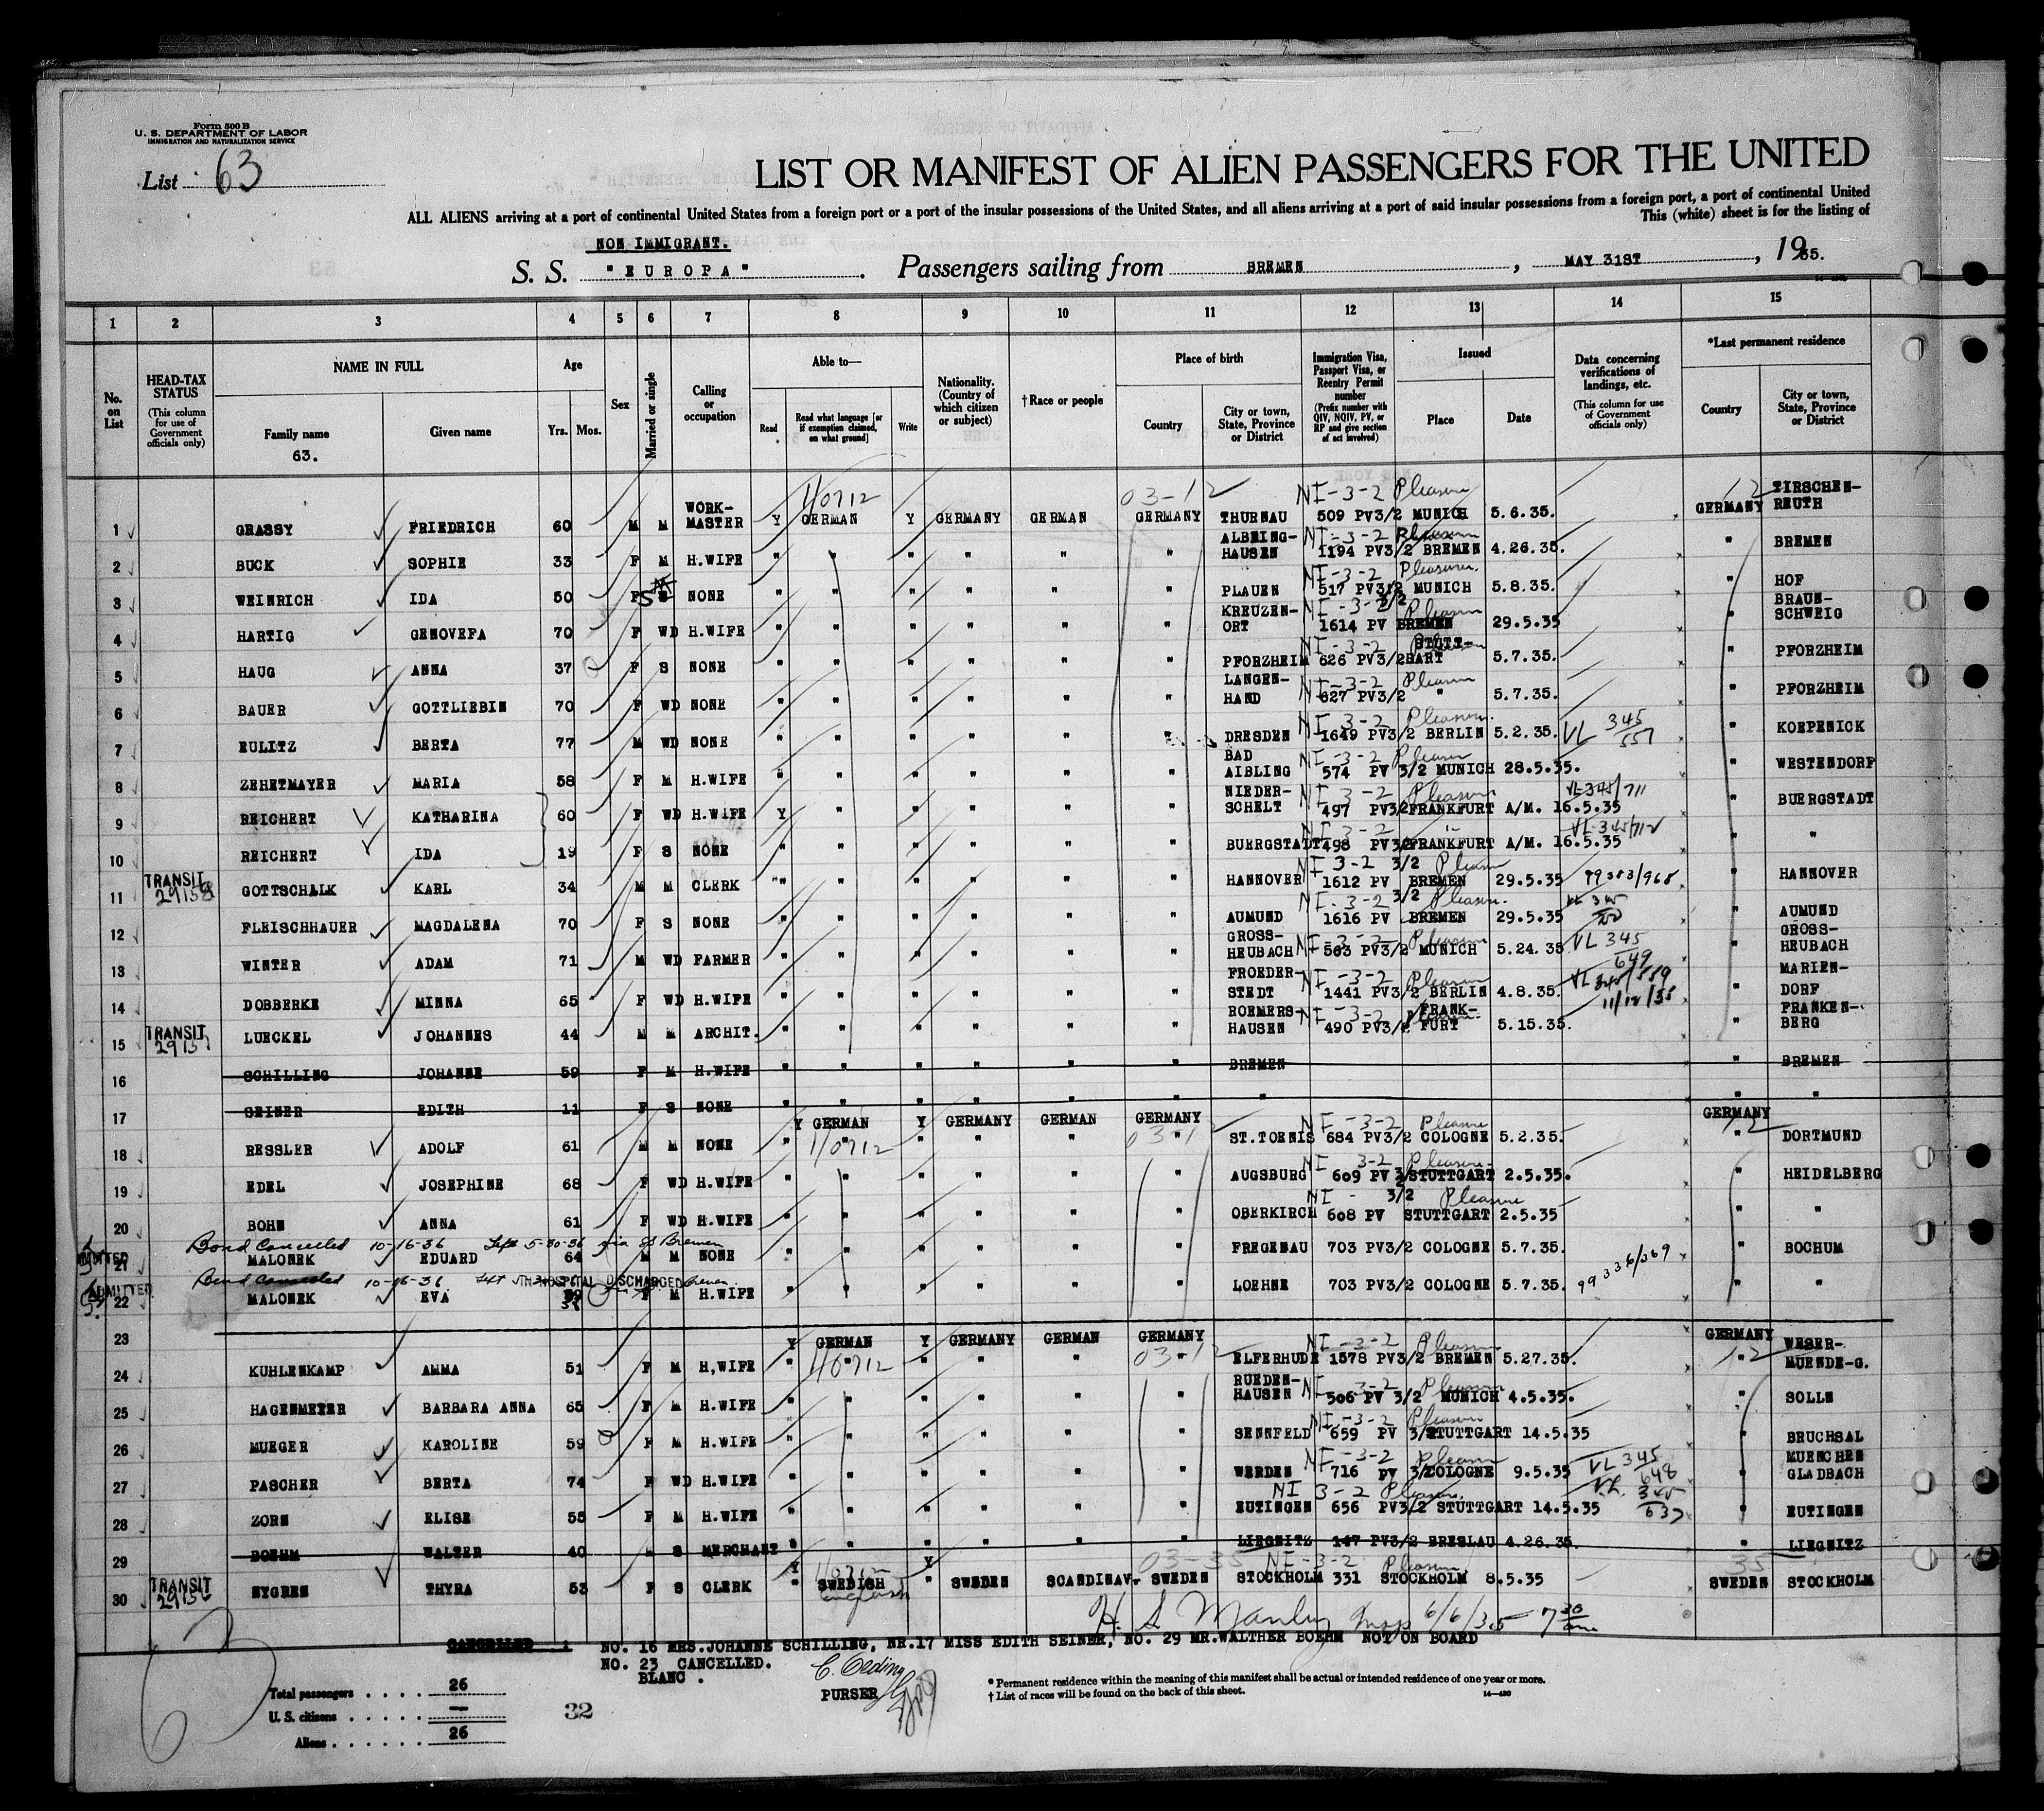 Form 500 B
U. S. DEPARTMENT OF LABOR
IMMIGRATION AND NATURALIZATION SERVICE
List 63
LIST OR MANIFEST OF ALIEN PASSENGERS FOR THE UNITED
ALL ALIENS arriving at a port of continental United States from a foreign port or a port of the insular possessions of the United States, and all aliens arriving at a port of said insular possessions from a foreign port, a port of continental United
This (white) sheet is for the listing of
NON IMMIGRANT.
S. S. "EUROPA". Passengers sailing from BREMEN, MAY 31ST, 1935.
1 2 3 4 5 6 7 8 9 10 11 12 13 14 15
No. on List
HEAD-TAX STATUS (This column for use of Government officials only)
NAME IN FULL
Family name
63.
Given name
Age
Yrs. Mos.
Sex
Married or single
Calling or occupation
Able to—
Read
Read what language [or if exemption claimed, on what ground]
Write
Nationality. (Country of which citizen or subject)
†Race or people
Place of birth
Country
City or town, State, Province or District
Immigration Visa, Passport Visa, or Reentry Permit number (Prefix number with QIV, NQIV, PV, or RP and give section of act involved)
Issued
Place
Date
Data concerning verifications of landings, etc. (This column for use of Government officials only)
*Last permanent residence
Country
City or town, State, Province or District
1 GRASSY FRIEDRICH 60 M M WORK-MASTER Y GERMAN Y GERMANY GERMAN GERMANY THURNAU NI-3-2 Pleasure 509 PV3/2 MUNICH 5.6.35. GERMANY TIRSCHEN-REUTH
2 BUCK SOPHIE 33 F M H.WIFE " " " " " " ALBRING-HAUSEN NI-3-2 Pleasure 1194 PV3/2 BREMEN 4.26.35. " BREMEN
3 WEINRICH IDA 50 F S NONE " " " " " " PLAUEN NI-3-2 Pleasure 517 PV3/2 MUNICH 5.8.35. " HOF
4 HARTIG GENOVEFA 70 F WD H.WIFE " " " " " " KREUZEN-ORT NI-3-2 Pleasure 1614 PV 3/2 BREMEN 29.5.35 " BRAUN-SCHWEIG
5 HAUG ANNA 37 F S NONE " " " " " " PFORZHEIM NI-3-2 Pleasure 626 PV3/2 STUTT-GART 5.7.35. " PFORZHEIM
6 BAUER GOTTLIEBIN 70 F WD NONE " " " " " " LANGEN-HAND NI-3-2 Pleasure 627 PV3/2 " 5.7.35. " PFORZHEIM
7 EULITZ BERTA 77 M WD NONE " " " " " " DRESDEN NI-3-2 Pleasure 1649 PV3/2 BERLIN 5.2.35. VL 345/557 " KOEPENICK
8 ZEHETMAYER MARIA 58 F M H.WIFE " " " " " " BAD AIBLING NI-3-2 Pleasure 574 PV 3/2 MUNICH 28.5.35. " WESTENDORF
9 REICHERT KATHARINA 60 F WD H.WIFE Y " " " " " NIEDER-SCHELT NI 3-2 Pleasure 497 PV3/2 FRANKFURT A/M. 16.5.35 VL 345/711 " BUERGSTADT
10 REICHERT IDA 19 F S NONE " " " " " " BUERGSTADT NI-3-2 " 498 PV3/2 FRANKFURT A/M. 16.5.35 VL-345/712 " "
11 TRANSIT 29158 GOTTSCHALK KARL 34 M M CLERK " " " " " " HANNOVER NI 3-2 Pleasure 1612 PV 3/2 BREMEN 29.5.35 99383/968 " HANNOVER
12 FLEISCHHAUER MAGDALENA 70 F S NONE " " " " " " AUMUND NI-3-2 Pleasure 1616 PV 3/2 BREMEN 29.5.35 VL 345 " AUMUND
13 WINTER ADAM 71 M WD FARMER " " " " " " GROSS-HEUBACH NI-3-2 Pleasure 563 PV3/2 MUNICH 5.24.35 VL 345/649 " GROSS-HEUBACH
14 DOBBERKE MINNA 65 F WD H.WIFE " " " " " " FROEDER-STEDT NI-3-2 Pleasure 1441 PV3/2 BERLIN 4.8.35. VL 345/559 11/12/35 " MARIEN-DORF
15 TRANSIT 29157 LUECKEL JOHANNES 44 M M ARCHIT. " " " " " " ROEMERS-HAUSEN NI-3-2 Pleasure 490 PV3/2 FRANK-FURT 5.15.35. " FRANKEN-BERG
16 SCHILLING JOHANNE 59 F M H.WIFE " " " " " " BREMEN " BREMEN
17 SEINER EDITH 11 F S NONE " " " " " " " "
Y GERMAN Y GERMANY GERMAN GERMANY GERMANY
18 RESSLER ADOLF 61 M M NONE " " " " " ST.TOENIS NI-3-2 Pleasure 684 PV3/2 COLOGNE 5.2.35. " DORTMUND
19 EDEL JOSEPHINE 68 F WD H.WIFE " " " " " " AUGSBURG NI 3-2 Pleasure 609 PV 3/2 STUTTGART 2.5.35. " HEIDELBERG
20 BOHN ANNA 61 F WD H.WIFE " " " " " " OBERKIRCH NI - 3/2 Pleasure 608 PV STUTTGART 2.5.35 " "
Bond Cancelled 10-16-36 Left 5-30-36 via SS Bremen
21 ADMITTED MALONEK EDUARD 64 M M NONE " " " " " " FREGENAU 703 PV3/2 COLOGNE 5.7.35. " BOCHUM
Bond Cancelled 10-16-36 Left HOSPITAL DISCHARGED Bremen
22 ADMITTED MALONEK EVA 59 F M H.WIFE " " " " " " LOEHNE 703 PV3/2 COLOGNE 5.7.35. 99336/369 " "
23 Y GERMAN Y GERMANY GERMAN GERMANY GERMANY
24 KUHLENKAMP AMMA 51 F M H,WIFE " " " " " " ELFERHUDE NI-3-2 Pleasure 1578 PV3/2 BREMEN 5.27.35. " WESER-MUENDE-G.
25 HAGENMEYER BARBARA ANNA 65 F M H.WIFE " " " " " " RUEDEN-HAUSEN NI 3-2 Pleasure 506 PV 3/2 MUNICH 4.5.35. " SOLLN
26 MUEGER KAROLINE 59 F M H.WIFE " " " " " " SENNFELD NI-3-2 Pleasure 659 PV 3/2 STUTTGART 14.5.35 " BRUCHSAL
27 PASCHER BERTA 74 F WD H.WIFE " " " " " " WERDEN NI-3-2 Pleasure 716 PV 3/2 COLOGNE 9.5.35 VL 345/648 " MUENCHEN GLADBACH
28 ZORN ELISE 55 F M H.WIFE " " " " " " EUTINGEN NI 3-2 Pleasure 656 PV3/2 STUTTGART 14.5.35 V.L. 345/637 " EUTINGEN
29 BOEHM WALTER 40 M S MERCHANT " " " " " " LIEGNITZ 147 PV3/2 BRESLAU 4.26.35. " LIEGNITZ
30 TRANSIT 29156 NYGREN THYRA 53 F S CLERK Y SWEDISH English Y SWEDEN SCANDINAV. SWEDEN STOCKHOLM NI-3-2 Pleasure 331 STOCKHOLM 8.5.35 SWEDEN STOCKHOLM
H. S. Manley Insp 6/6/35 7 30 am
CANCELLED : NO. 16 MRS.JOHANNE SCHILLING, NR.17 MISS EDITH SEINER, NO. 29 MR.WALTHER BOEHM NOT ON BOARD
NO. 23 CANCELLED.
BLANC .
PURSER
Total passengers . . . . 26
U. S. citizens . . . . . —
Aliens . . . . . . 26
32
* Permanent residence within the meaning of this manifest shall be actual or intended residence of one year or more.
† List of races will be found on the back of this sheet.
14—430
63